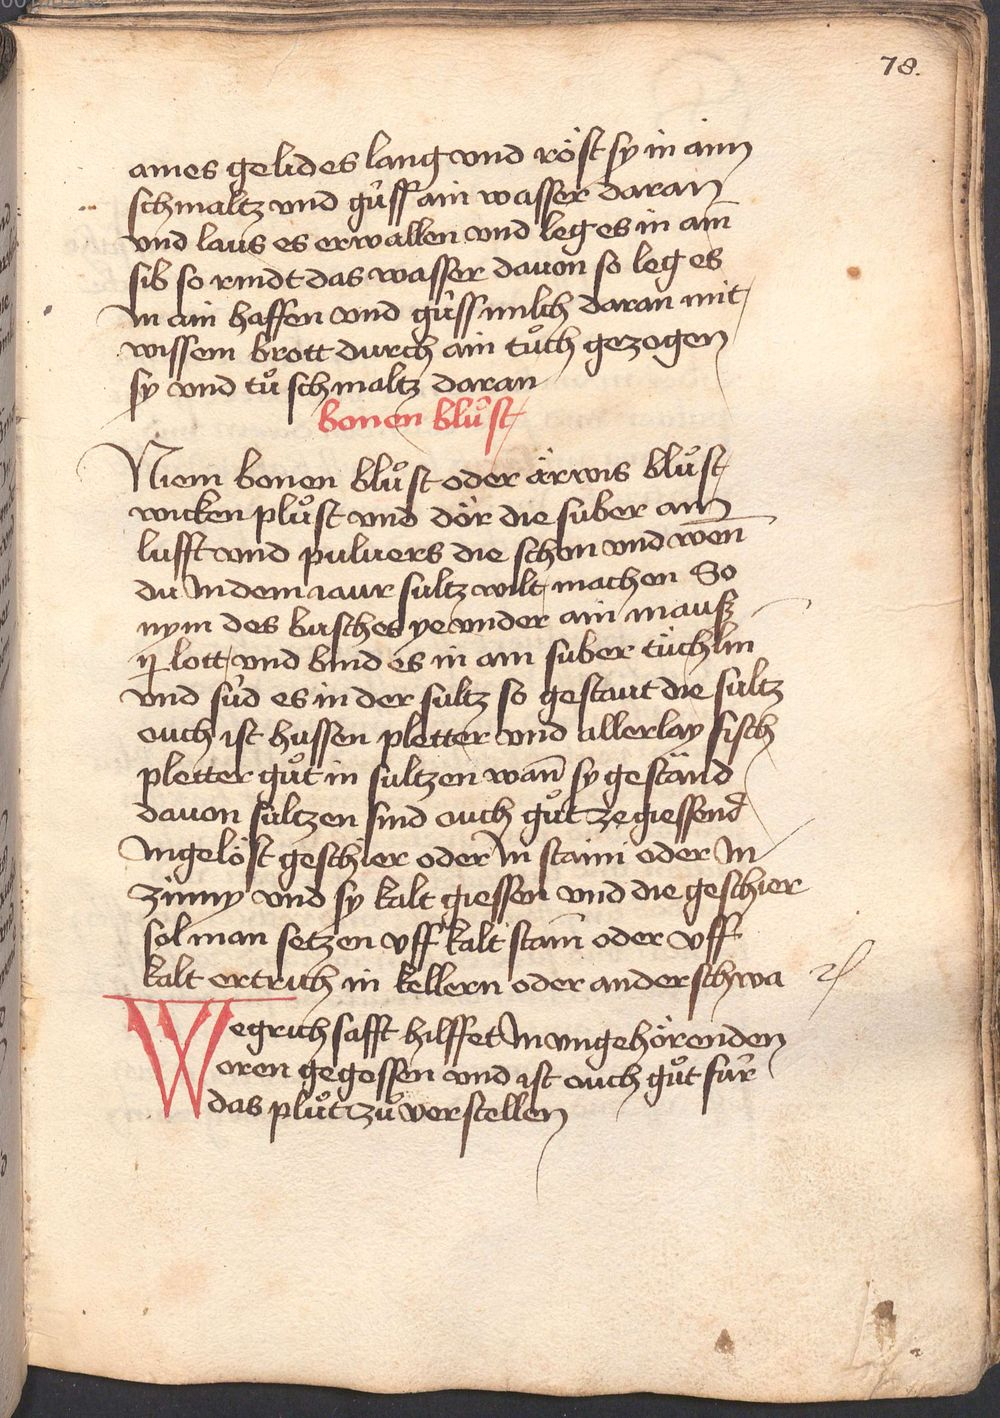 78.
aines gelides lang vnd röst sy in ainm
schmaltz vnd gůss ain wasser daran
vnd laus es erwallen vnd leg es in ain̄
sib so rindt das wasser dauon so leg es
In ain haffen vnd gůss milch daran mit
wissem brott durch ain tůch gezogen
sy vnd tů schmaltz daran
bonen blůst
Niem bonen blůst oder ärwis blůst
wicken plůst vnd dör die suber am
lufft vnd puluers die schon vnd wen̄
du In dem iaur sultz wilt machen So
nym des busches ye vnder ain mausz
ij lott vnd bind es in ain suber tüchlin
vnd süd es in der sultz so gestaut die sultz
ouch ist hussen pletter vnd allerlay fisch
pletter gůt in sultzen wan̄ sy geständ
dauon sultzen sind ouch gůt ze giessend
In gelöst geschier oder In staini oder In
zinny vnd sy kalt giessen vnd die geschier
sol man setzen vff kalt stain̄ oder vff
kalt ertrich in kellern oder anderschwa
Wegrich safft hilffet In vngehörenden
oren gegossen vnd ist ouch gůt für
das plůt zů verstellen